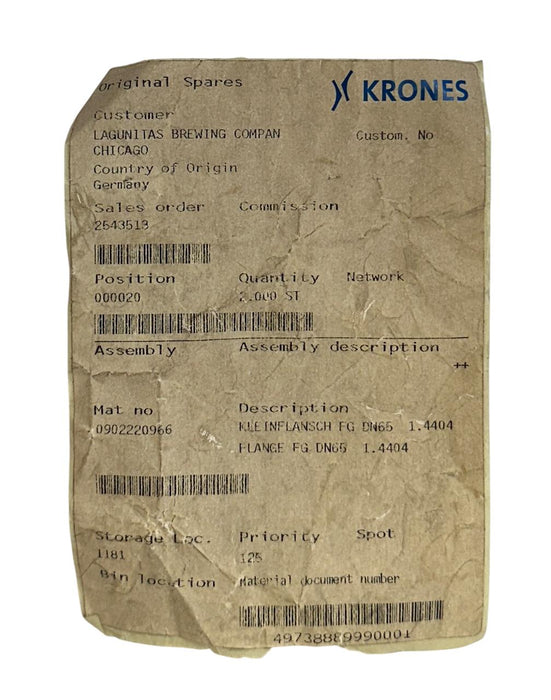 Original Spares
KRONES
Customer
LAGUNITAS BREWING COMPAN
Custom. No
CHICAGO
Country of Origin
Germany
Sales order Commission
2643513
Position Quantity Network
000020 2.000 ST
Assembly Assembly description
++
Mat no Description
0902220966 KLEINFLANSCH FG DN65 1.4404
FLANGE FG DN65 1.4404
Storage Loc. Priority Spot
1181 125
Bin location Material document number
49738889990001